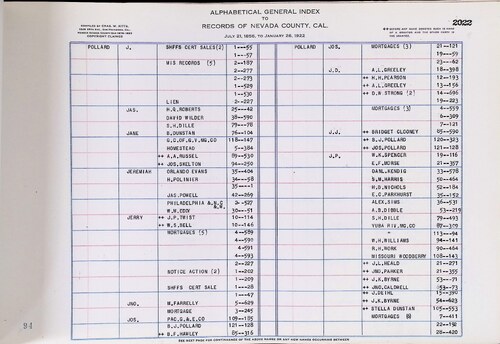 ALPHABETICAL GENERAL INDEX
TO
RECORDS OF NEVADA COUNTY, CAL.
JULY 21, 1856, TO JANUARY 26, 1922
COMPILED BY CHAS. W. KITTS,
COPYRIGHT CLAIMED
2022
POLLARD J. SHFFS CERT SALES(2) 1--55
1--57
MIS RECORDS (5) 2--187
2--277
2--273
1--529
1--530
LIEN 2--227
JAS. H.Q. ROBERTS 25--42
DAVID WILDER 38--590
S.H. DILLE 79--78
JANE B. DUNSTAN 76--104
G.C. OF G.V. MG. CO 118--147
HOMESTEAD 5--384
++ A.A. RUSSEL 89--530
++ JOS. SKELTON 94--250
JEREMIAH ORLANDO EVANS 35--404
H. POLINIER 34--58
35----1
JAS. POWELL 42--269
PHILADELPHIA 2--527
W.M. EDDY 30--51
JERRY ++ J.P. TWIST 10--114
++ W.S. BELL 10--146
MORTGAGES (5) 4--589
4--590
4--591
4--593
2--227
NOTICE ACTION (2) 1--202
1--209
SHFFS CERT SALE 1--28
1--47
JNO. M. FARRELLY 5--629
MORTGAGE 3--245
JOS. PAC. G. & E. CO 109--185
S.J. POLLARD 121--128
++ B.F. HAWLEY 85--316
POLLARD JOS. MORTGAGES (3) 21--121
19--57
23--62
J.D. A.L. GREELEY 18--398
++ H.H. PEARSON 12--193
++ A.L. GREELEY 13--156
++ D.N. STRONG (2) 14--696
19--223
MORTGAGES (3) 4--559
6--309
7--121
J.J. ++ BRIDGET CLOONEY 85--590
++ B.J. POLLARD 120--323
++ JOS. POLLARD 121--128
J.P. W.H. SPENCER 19--116
E.F. MORSE 21--357
DANL. KENDIG 33--578
B.W. HARRIS 50--464
H.D. NICHOLS 52--184
E.C. PARKHURST 35--152
ALEX. SIMS 36--531
A.B. DIBBLE 53--219
S.H. DILLE 79--493
YUBA RIV. MG. CO 87--309
" 113--94
W.H. WILLIAMS 94--141
R.H. RORK 90--464
MISSOURI WOODBERRY 108--143
++ J.L. HEALD 21--271
++ JNO. PARKER 21--355
++ J.K. BYRNE 53--71
++ JNO. CALDWELL 53--73
++ J. DEIHL 15--390
++ J.K. BYRNE 54--623
++ STELLA DUNSTAN 105--553
MORTGAGES 7--411
22--192
28--420
SEE NEXT PAGE FOR CONTINUANCE OF THE ABOVE NAME OR ANY NEW NAMES OCCURRING BETWEEN